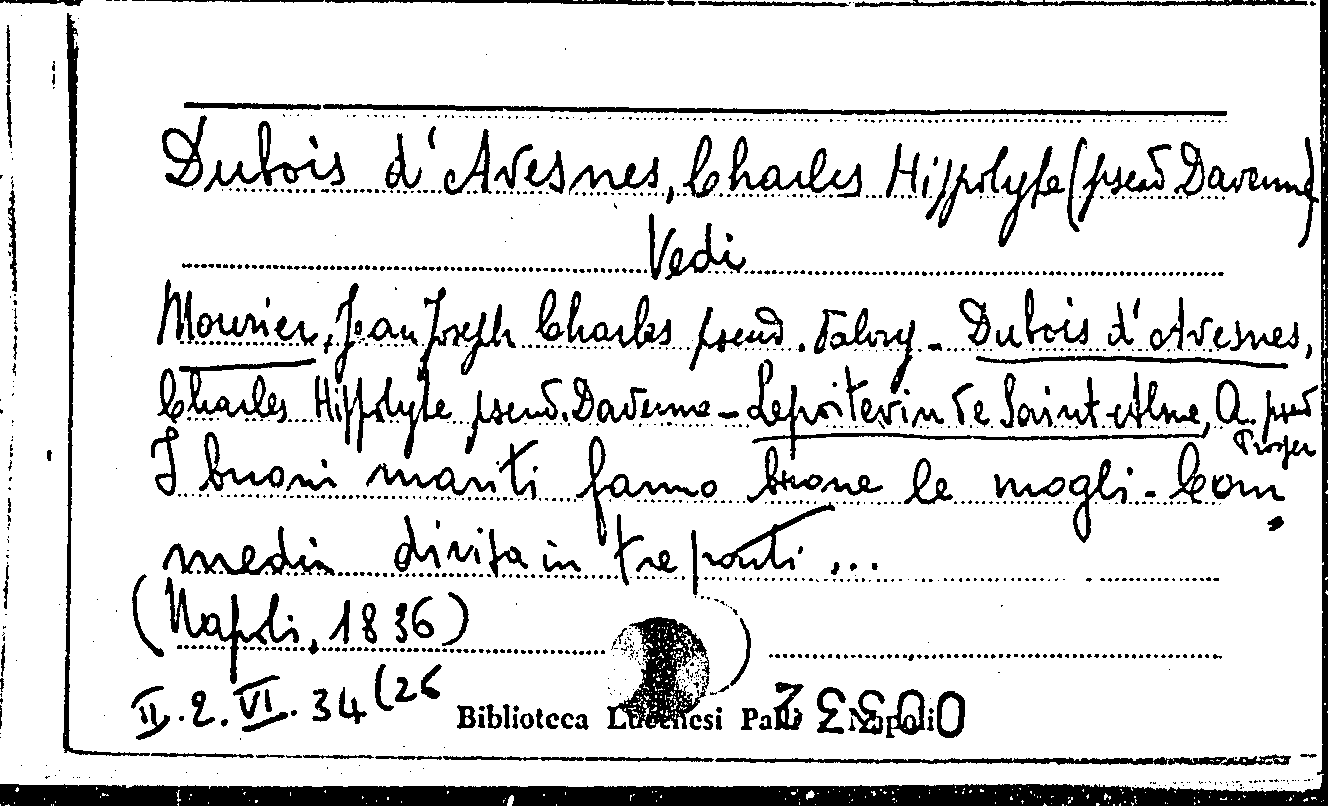 Dubois d'Avesnes, Charles Hippolyte (pseud Davenne)
Vedi
Mourier, Jean Joseph Charles pseud. Valory - Dubois d'Avesnes,
Charles Hippolyte pseud. Davenne - Lepoitevin de Saint-Alme, A. pseud
Prosper
I buoni mariti fanno buone le mogli - Com
media divisa in tre parti ...
(Napoli, 1836)
II. 2. VI. 34 (26
Biblioteca Lucchesi Palli Napoli